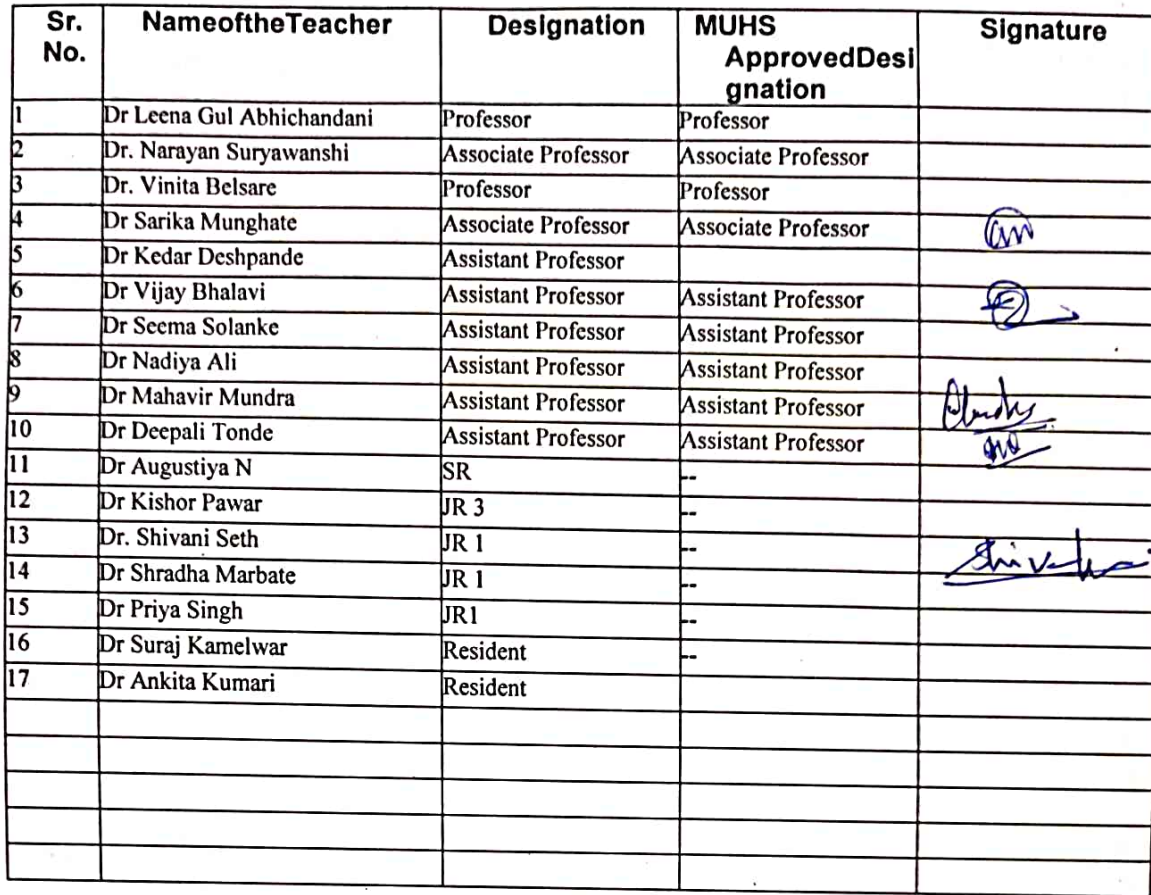 Sr. No. NameoftheTeacher Designation MUHS ApprovedDesi gnation Signature
1 Dr Leena Gul Abhichandani Professor Professor
2 Dr. Narayan Suryawanshi Associate Professor Associate Professor
3 Dr. Vinita Belsare Professor Professor
4 Dr Sarika Munghate Associate Professor Associate Professor
5 Dr Kedar Deshpande Assistant Professor
6 Dr Vijay Bhalavi Assistant Professor Assistant Professor
7 Dr Seema Solanke Assistant Professor Assistant Professor
8 Dr Nadiya Ali Assistant Professor Assistant Professor
9 Dr Mahavir Mundra Assistant Professor Assistant Professor
10 Dr Deepali Tonde Assistant Professor Assistant Professor
11 Dr Augustiya N SR --
12 Dr Kishor Pawar JR 3 --
13 Dr. Shivani Seth JR 1 --
14 Dr Shradha Marbate JR 1 --
15 Dr Priya Singh JR1 --
16 Dr Suraj Kamelwar Resident --
17 Dr Ankita Kumari Resident